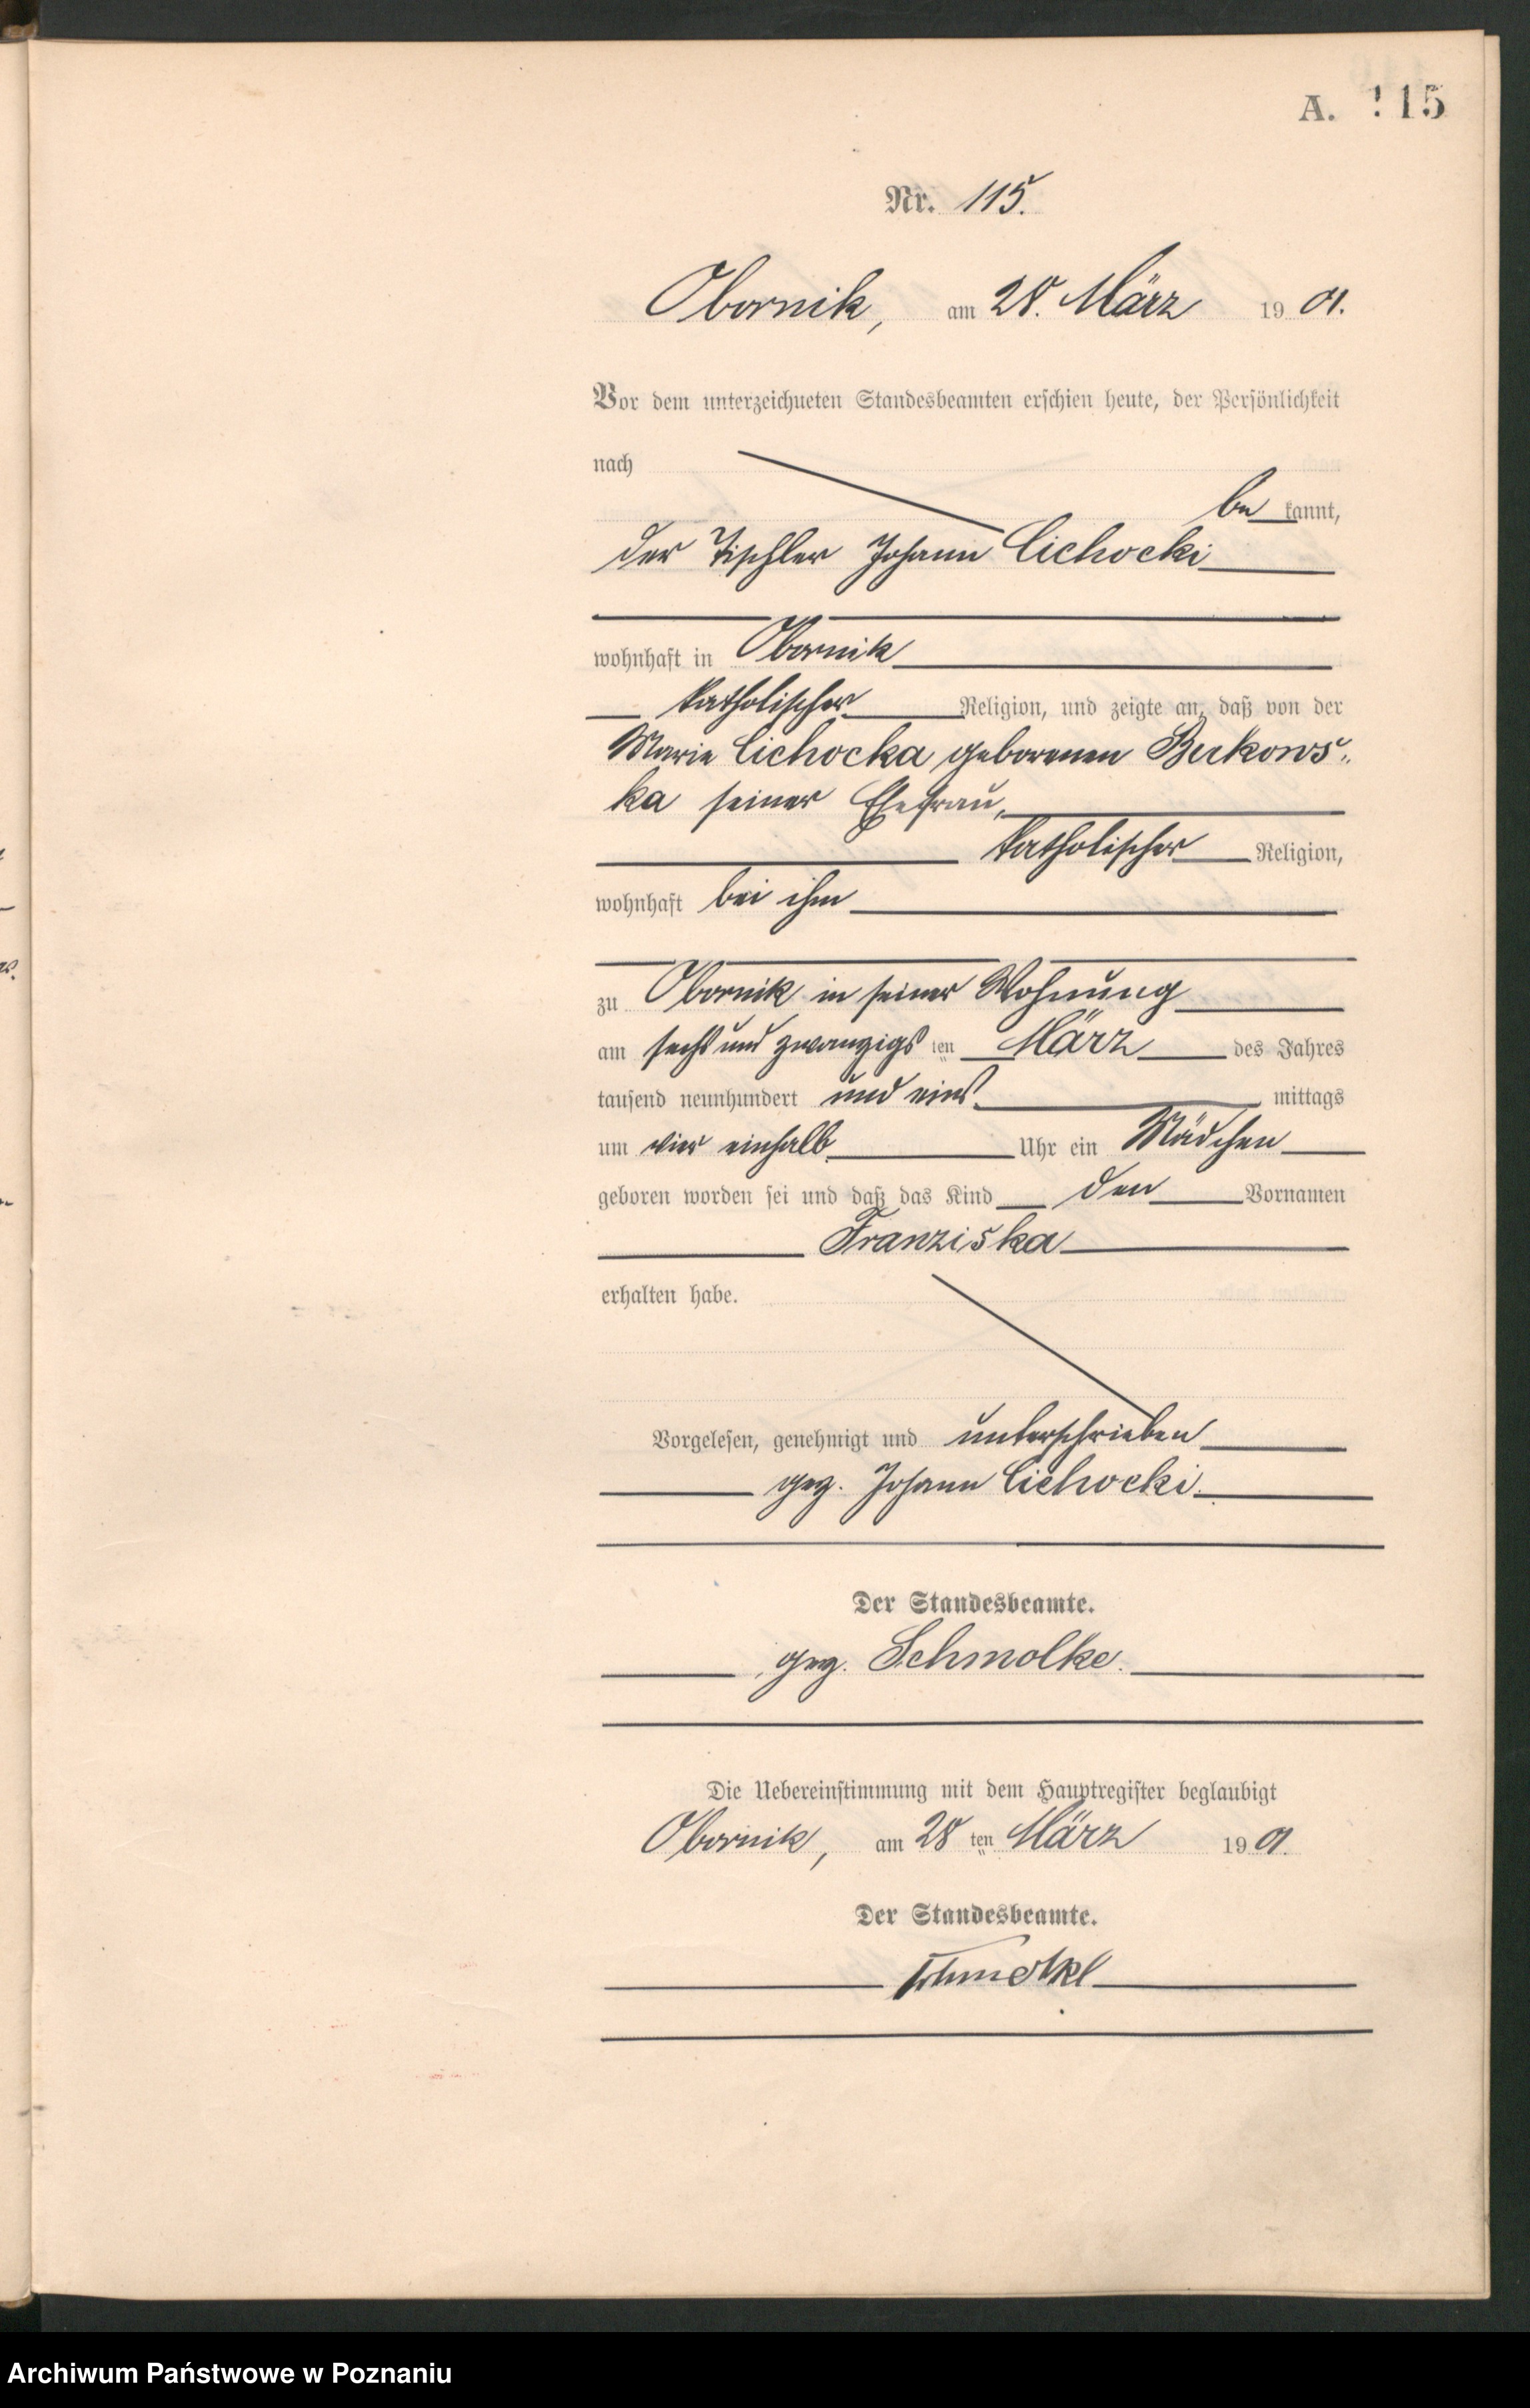 A. 115
Nr. 115.
Obornik, am 28. März 1901.
Vor dem unterzeichneten Standesbeamten erschien heute, der Persönlichkeit
nach
bekannt,
der Tischler Johann Cichocki
wohnhaft in Obornik
katholischer Religion, und zeigte an, daß von der
Marie Cichocka geborenen Berkows-
ka seiner Ehefrau,
katholischer Religion,
wohnhaft bei ihm
zu Obornik in seiner Wohnung
am sechs und zwanzigsten März des Jahres
tausend neunhundert und eins mittags
um vier einhalb Uhr ein Mädchen
geboren worden sei und daß das Kind den Vornamen
Franziska
erhalten habe.
Vorgelesen, genehmigt und unterschrieben
gez. Johann Cichocki.
Der Standesbeamte.
gez. Schmolke.
Die Uebereinstimmung mit dem Hauptregister beglaubigt
Obornik, am 28ten März 1901.
Der Standesbeamte.
Schmolke
Archiwum Państwowe w Poznaniu